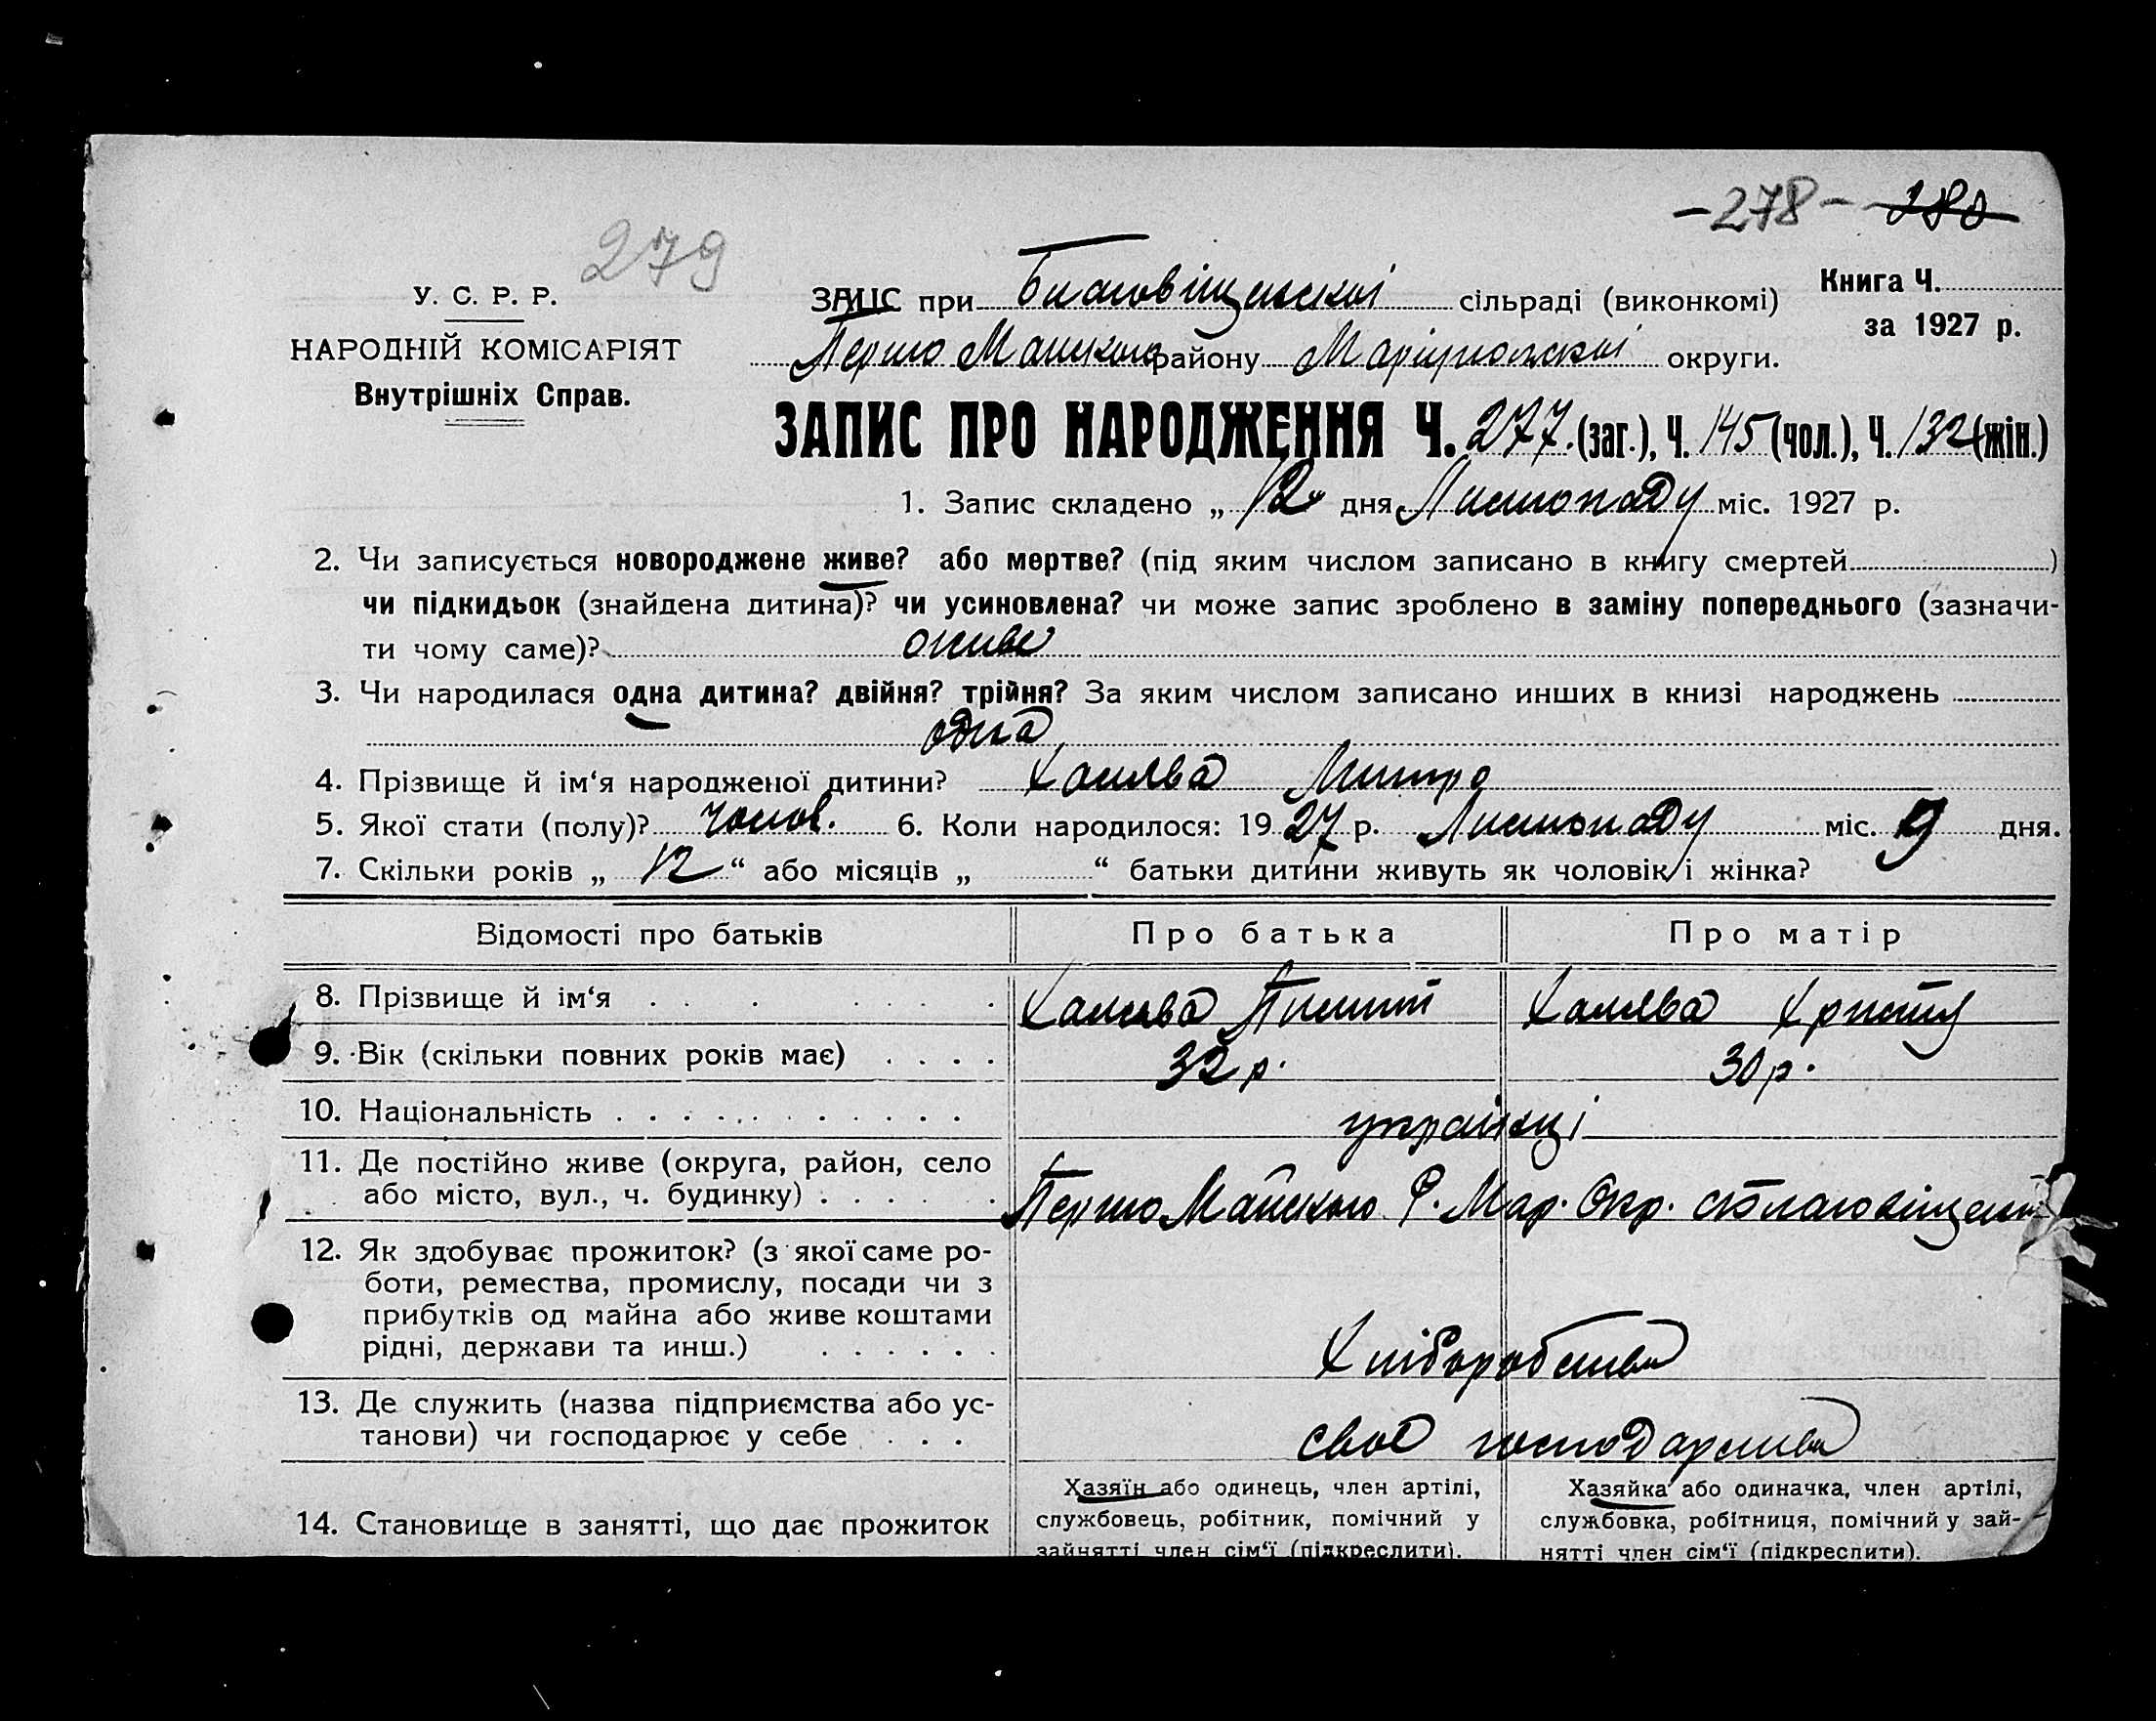 -278- 280
279
У. С. Р. Р.
НАРОДНІЙ КОМІСАРІЯТ
Внутрішніх Справ.
Книга Ч.
за 1927 р.
ЗАЦС при Благовіщенської сільраді (виконкомі)
Першо Майського району Маріупольської округи.
ЗАПИС ПРО НАРОДЖЕННЯ Ч. 277. (заг.), Ч. 145 (чол.), Ч. 132 (жін.)
1. Запис складено „ 12 " дня Листопаду міс. 1927 р.
2. Чи записується новороджене живе? або мертве? (під яким числом записано в книгу смертей )
чи підкидьок (знайдена дитина)? чи усиновлена? чи може запис зроблено в заміну попереднього (зазначи-
ти чому саме)? живе
3. Чи народилася одна дитина? двійня? трійня? За яким числом записано инших в книзі народжень
одна
4. Прізвище й ім‘я народженої дитини? Халява Митро
5. Якої стати (полу)? чолов. 6. Коли народилося: 19 27 р. Листопаду міс. 9 дня.
7. Скільки років „ 12 “ або місяців „ “ батьки дитини живуть як чоловік і жінка?
Відомості про батьків Про батька Про матір
8. Прізвище й ім‘я Халява Пилип Халява Христя
9. Вік (скільки повних років має) 32 р. 30 р.
10. Національність українці
11. Де постійно живе (округа, район, село
або місто, вул., ч. будинку) Першо Майського Р. Мар. Окр.
12. Як здобуває прожиток? (з якої саме ро-
боти, ремества, промислу, посади чи з
прибутків од майна або живе коштами
рідні, держави та инш.) Хліборобство
13. Де служить (назва підприємства або ус-
танови) чи господарює у себе своє господарство
14. Становище в занятті, що дає прожиток
Хазяїн або одинець, член артілі,
службовець, робітник, помічний у
зайнятті член сім‘ї (підкреслити).
Хазяйка або одиначка, член артілі,
службовка, робітниця, помічний у зай-
нятті член сім‘ї (підкреслити).